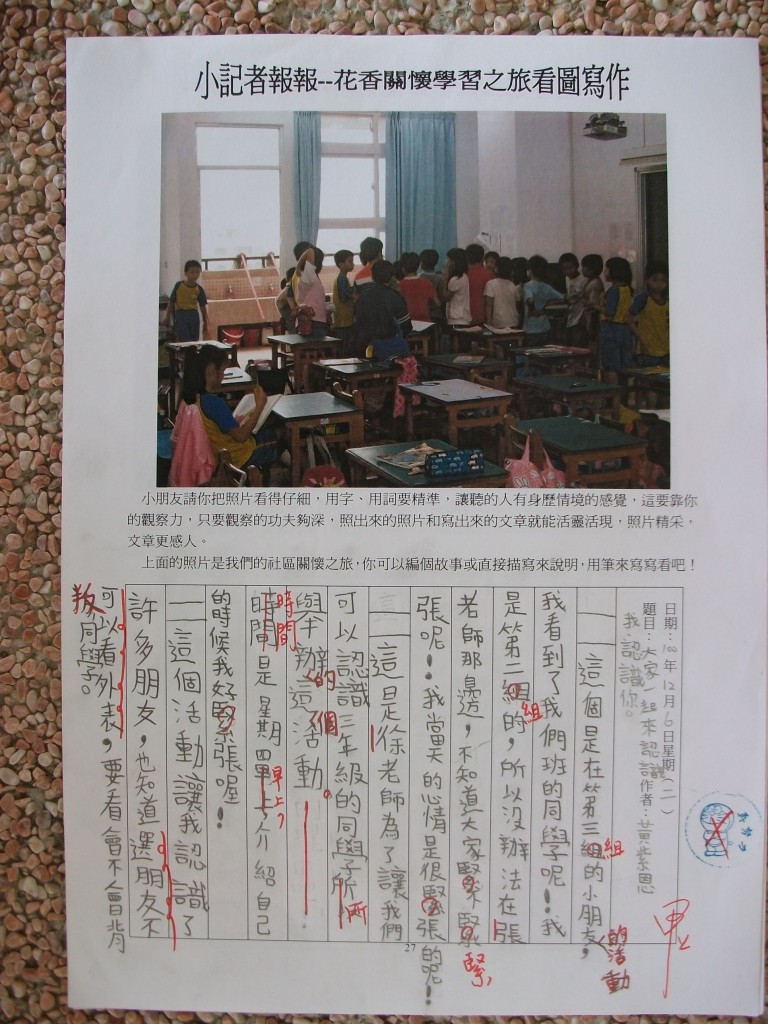 小記者報報--花香關懷學習之旅看圖寫作
小朋友請你把照片看得仔細，用字、用詞要精準，讓聽的人有身歷情境的感覺，這要靠你
的觀察力，只要觀察的功夫夠深，照出來的照片和寫出來的文章就能活靈活現，照片精采，
文章更感人。
上面的照片是我們的社區關懷之旅，你可以編個故事或直接描寫來說明，用筆來寫寫看吧！
日期：100年12月6日星期（二）
題目：大家一起來認識 作者：黃紫恩
我認識你。
這個是在第三組的小朋友，
組
的活動
我看到了我們班的同學呢！我
是第二組的，所以沒辦法在張
組
老師那邊，不知道大家緊不緊
緊
張呢！我當天的心情是很緊張的呢！
這是徐老師為了讓我們
可以認識三年級的同學所
所
舉辦這活動
的個。
時間是星期四早上介紹自己
時間
早上，
的時候我好緊張喔！
這個活動讓我認識了
許多朋友，也知道選朋友不
可以看外表，要看會不會背
叛同學。
甲上
27